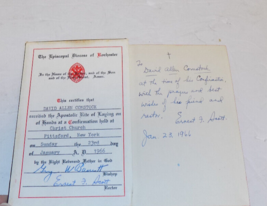 The Episcopal Diocese of Rochester
In the Name of the Father, and of the Son
and of the Holy Ghost. Amen.
This certifies that
DAVID ALLEN COMSTOCK
received the Apostolic Rite of Laying on
of Hands at a Confirmation held at
Christ Church
Pittsford, New York
on Sunday the 23rd day
of January A. D. 1966
by the Right Reverend Father in God
Bishop
Rector
To
David Allen Comstock
on the day of his Confirmation,
with the prayers and best
wishes of his friend and
rector.
Jan. 23, 1966